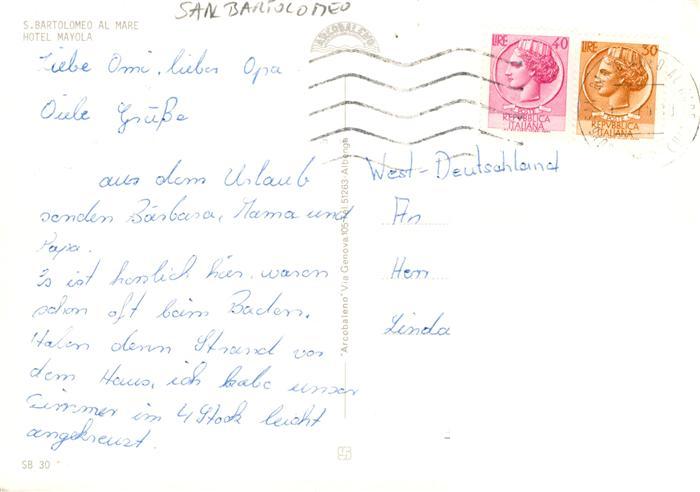 SAN BARTOLOMEO
S.BARTOLOMEO AL MARE
HOTEL MAYOLA
ARCOBALENO
LIRE 40
POSTE
REPVBBLICA
ITALIANA
LIRE 30
POSTE
REPVBBLICA
ITALIANA
Liebe Omi, lieber Opa
Viele Grüße
aus dem Urlaub
senden Bärbara, Mama und
Papa.
Es ist herrlich hier, waren
schon oft beim Baden.
Haben denn Strand vor
dem Haus, ich habe unser
Zimmer im 4 Stock leicht
angekreuzt.
"Arcobaleno" Via Genova Tel. 51263 Albenga
West-Deutschland
An
Herr
Linda
SB 30